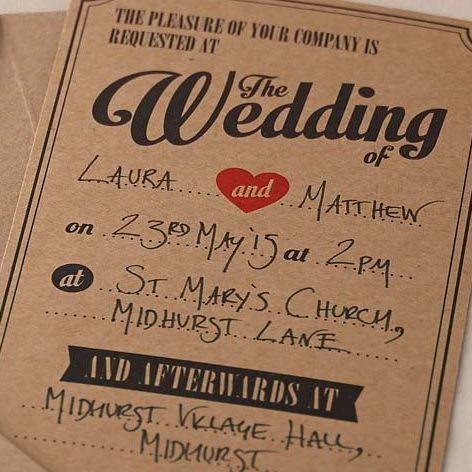 THE PLEASURE OF YOUR COMPANY IS
REQUESTED AT
The
Wedding
of
LAURA and MATTHEW
on 23RD MAY '15 at 2PM
at ST MARY'S CHURCH,
MIDHURST LANE
AND AFTERWARDS AT
MIDHURST VILLAGE HALL,
MIDHURST